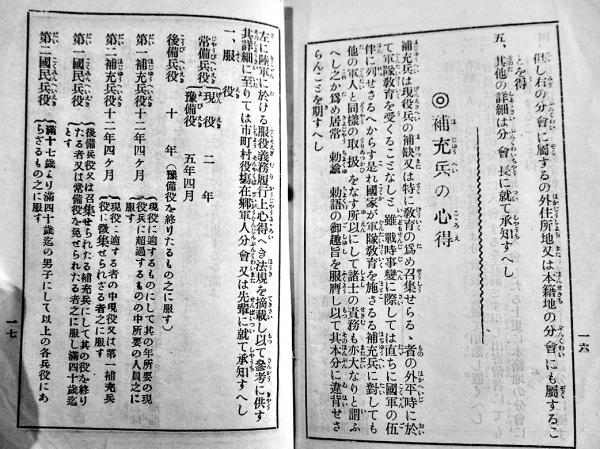 但し右の分會に屬するの外住所地又は本籍地の分會にも屬するこ
とを得
五、其他の詳細は分會長に就て承知すへし
◎補充兵の心得
補充兵は現役兵の補缺又は特に教育の爲め召集せらるゝ者の外平時に於
て軍隊教育を受くることなしと雖戰時事變に際しては直ちに國軍の伍
伴に列せさるへからす是れ國家が軍隊教育を施さゝる補充兵に對しても
他の軍人と同樣の取扱をなす所以にして諸士の責務も亦大なりと謂ふ
へし之か爲め居常 勅諭 勅語の御趣旨を服膺し以て其本分に違背せさ
らんことを期すへし
一六
左に陸軍に於ける服役義務履行上心得へき法規を摘載し以て參考に供す
其詳細に至りては市町村役場在郷軍人分會又は先輩に就て承知すへし
一、服役
常備兵役 現役 二年
豫備役 五年四月
後備兵役 十年(豫備役を終りたるものに服す)
第一補充兵役十二年四ケ月 現役に適するものにして其の年所要の現
役兵に超過するものの中所要の人員之に
服す
第二補充兵役十二年四ケ月 現役に適する者の中現役又は第一補充兵
役に徴集せられざる者之に服す
第一國民兵役 後備兵役又は召集せられたる補充兵にして其の役を終り
たる者又は常備役を免せられたる者之に服し滿四十歳迄
とす
第二國民兵役 滿十七歳より滿四十歳迄の男子にして以上の各兵役にあ
らざるもの之に服す
一七